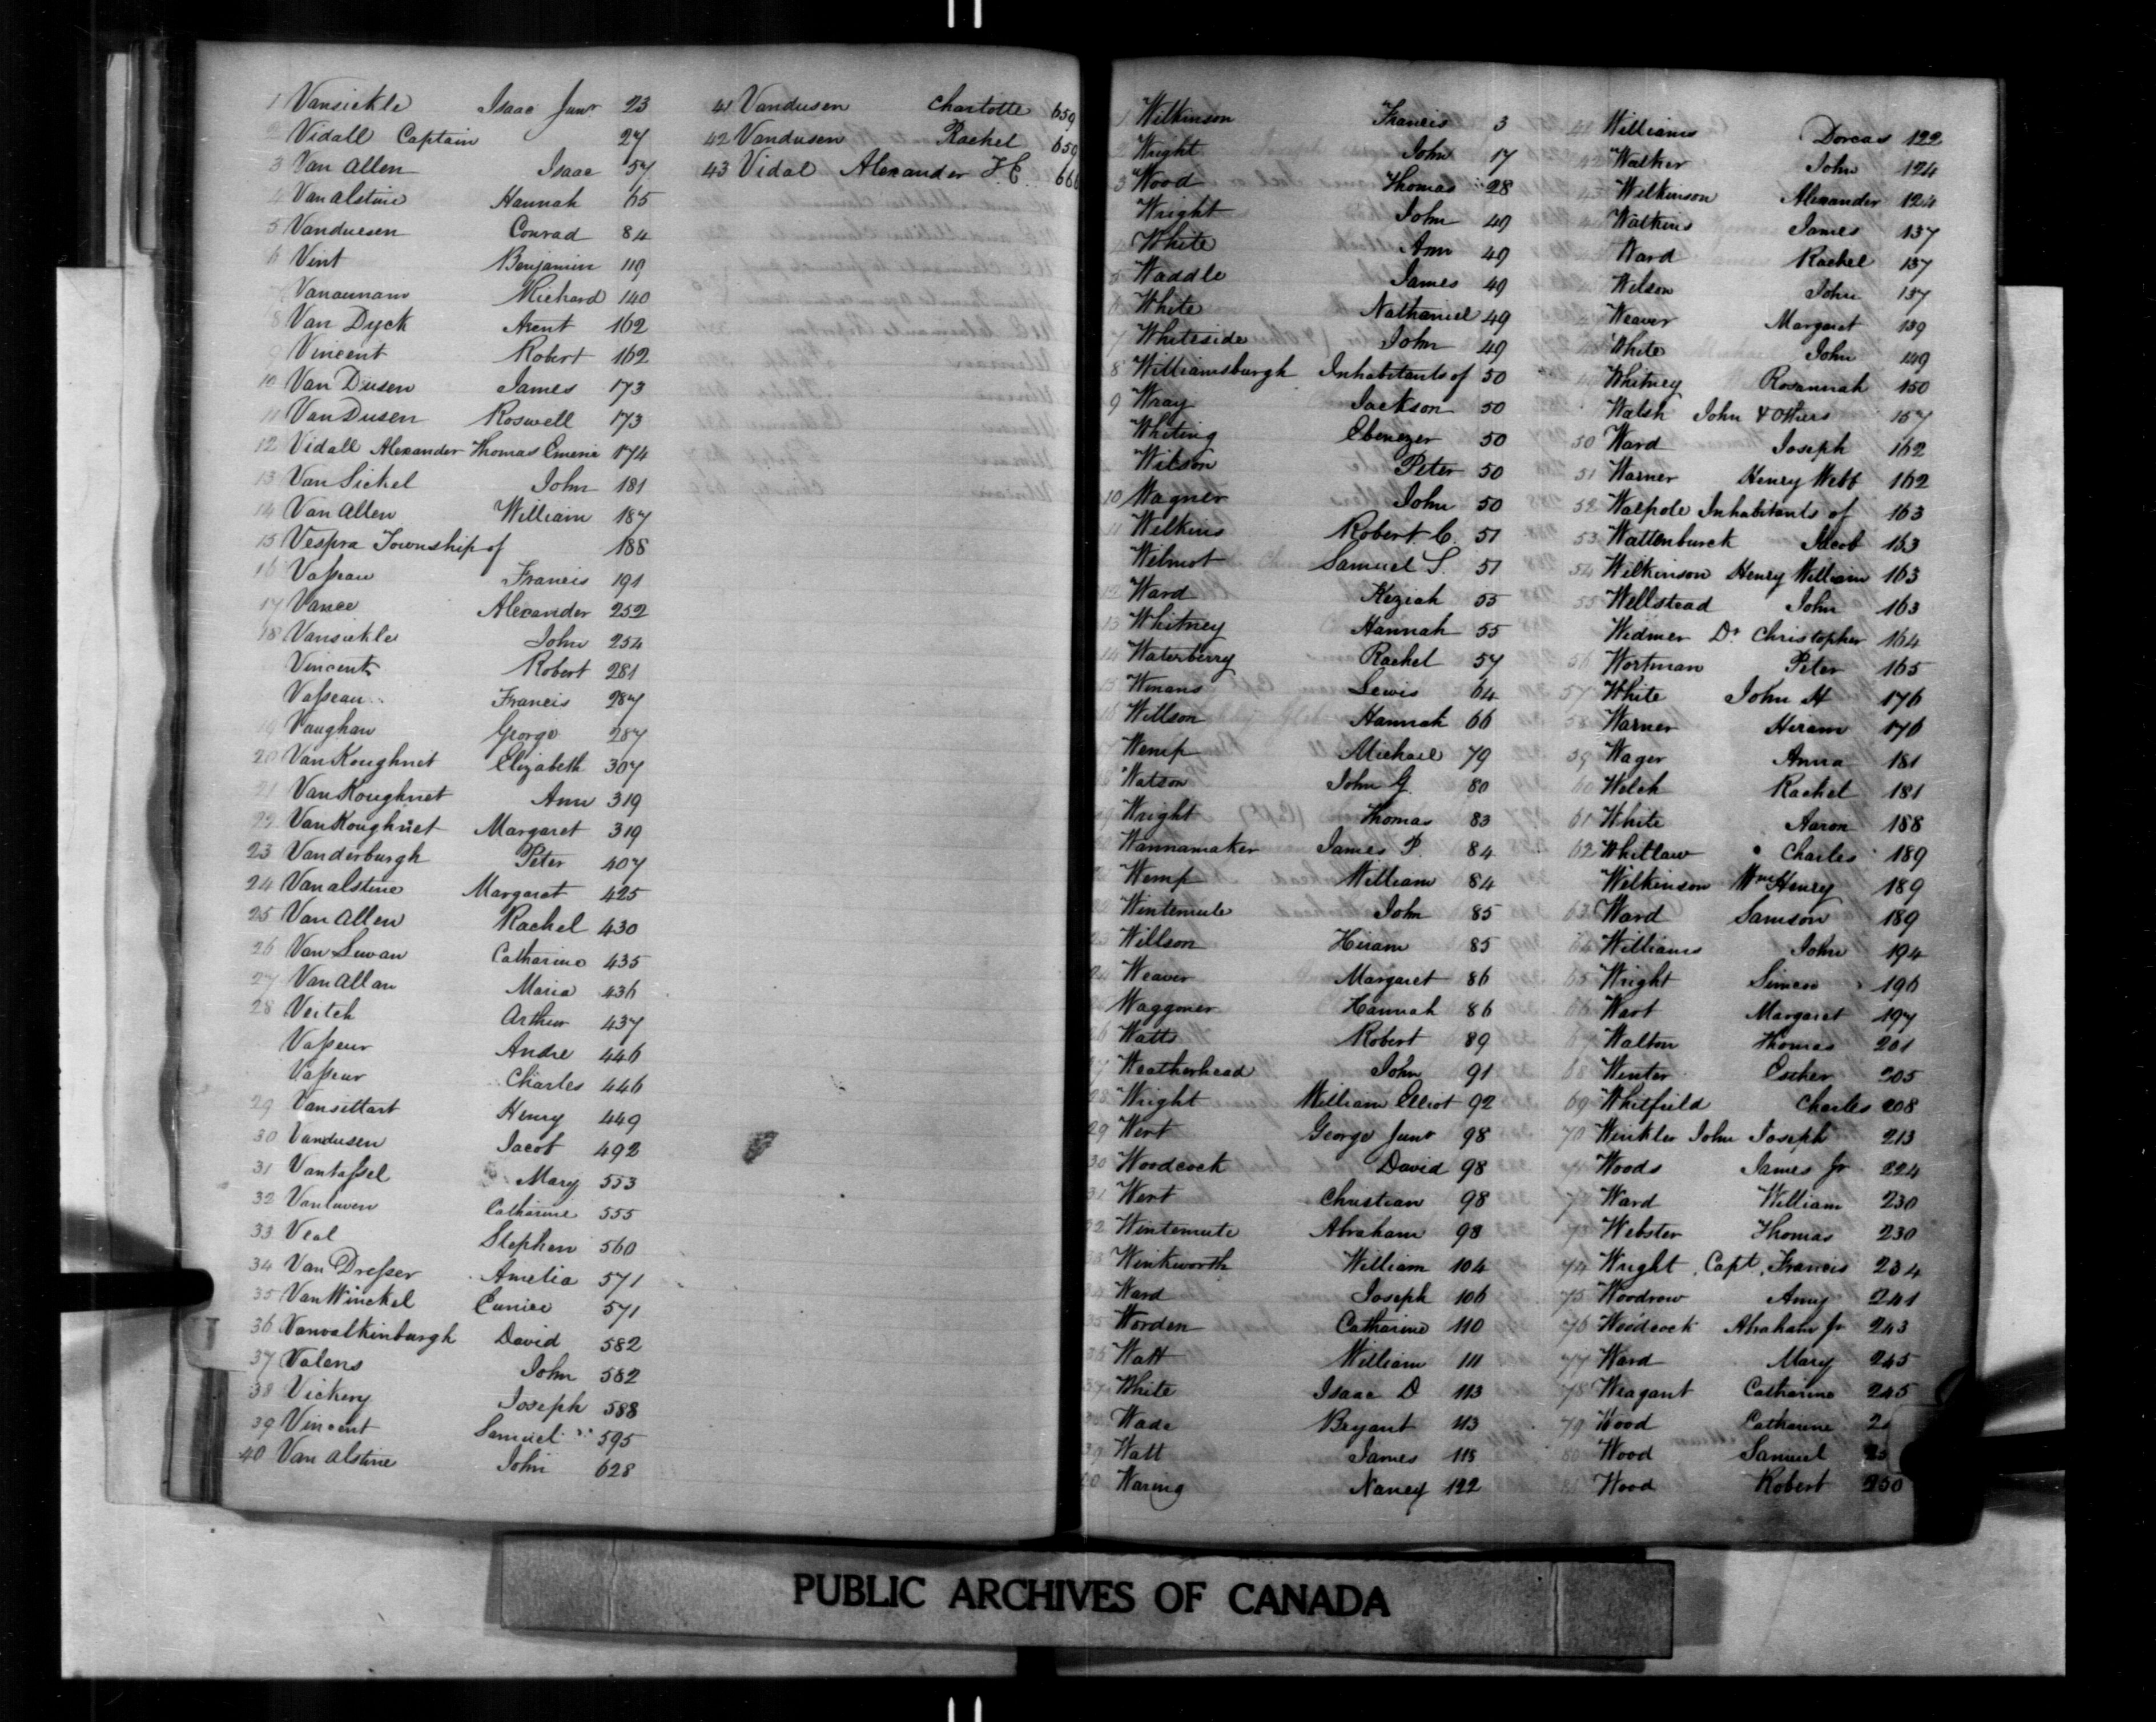 1 Vansickle Isaac Junr 23
2 Vidall Captain 27
3 Van Allen Isaac 57
4 Van alstine Hannah 65
5 Vanduesen Conrad 84
6 Vint Benjamin 119
Richard 140
8 Van Dyck Arent 162
9 Vincent Robert 162
10 Van Dusen James 173
11 Van Dusen Roswell 173
12 Vidall Alexander Thomas Emeric 174
13 Van Sickel John 181
14 Van Allen William 187
15 Vespra Township of 188
16 Vasseau Francis 191
17 Vance Alexander 252
18 Vansickle John 254
Vincent Robert 281
Vasseau Francis 287
19 Vaughan George 287
20 VanKoughnet Elizabeth 307
21 VanKoughnet Ann 319
22 VanKoughnet Margaret 319
23 Vanderburgh Peter 407
24 Van alstine Margaret 425
25 Van Allen Rachel 430
26 Van Luvan Catharine 435
27 Van Allan Maria 436
28 Veitch Arthur 437
Vasseur Andre 446
Vasseur Charles 446
29 Vansittart Henry 449
30 Vandusen Jacob 492
31 Vantassel Mary 553
32 Vanluven Catharine 555
33 Veal Stephen 560
34 Van Dresser Amelia 571
35 Van Winckel Eunice 571
36 Vanvalkinburgh David 582
37 Valens John 582
38 Vickery Joseph 588
39 Vincent Samuel 595
40 Van alstine John 628
41 Vandusen Charlotte 659
42 Vandusen Rachel 659
43 Vidal Alexander T. E. 666
1 Wilkinson Francis 3
2 Wright John 17
3 Wood Thomas 28
Wright John 49
4 White Ann 49
5 Waddle James 49
6 White Nathaniel 49
7 Whiteside John 49
8 Williamsburgh Inhabitants of 50
9 Wray Jackson 50
Whiting Ebenezer 50
Wilson Peter 50
10 Wagner John 50
11 Wilkins Robert C. 51
Wilmot Samuel S. 51
12 Ward Keziah 55
13 Whitney Hannah 55
14 Waterberry Rachel 57
15 Winans Lewis 64
16 Willson Hannah 66
17 Wemp Michael 79
18 Watson John G. 80
19 Wright Thomas 83
Wannamaker James P. 84
Wemp William 84
22 Wintemute John 85
23 Willson Hiram 85
24 Weaver Margaret 86
Waggoner Hannah 86
26 Watts Robert 89
27 Weatherhead John 91
28 Wright William Elliot 92
29 Wert George Junr 98
30 Woodcock David 98
31 Wert Christian 98
32 Wintemute Abraham 98
33 Winkworth William 104
34 Ward Joseph 106
35 Worden Catharine 110
36 Watt William 111
37 White Isaac D 113
Wade Bryant 113
39 Watt James 118
40 Waring Nancy 122
41 Williams Dorcas 122
42 Walker John 124
43 Wilkinson Alexander 124
Watkins James 137
Ward Rachel 137
Wilson John 137
Weaver Margaret 139
White John 149
Whitney Rosannah 150
Walsh John & Others 157
50 Ward Joseph 162
51 Warner Henry Webb 162
52 Walpole Inhabitants of 163
53 Wattenburck Jacob 163
54 Wilkinson Henry William 163
55 Wellstead John 163
Widmer Dr Christopher 164
56 Wortman Peter 165
57 White John H 176
58 Warner Hiram 176
59 Wager Anna 181
60 Welch Rachel 181
61 White Aaron 188
62 Whitlaw Charles 189
Wilkinson Wm Henry 189
63 Ward Samson 189
64 Williams John 194
65 Wright Simeon 196
66 Wart Margaret 197
67 Walton Thomas 201
68 Winter Esther 205
69 Whitfield Charles 208
70 Winkler John Joseph 213
71 Woods James Jr 224
72 Ward William 230
73 Webster Thomas 230
74 Wright Capt. Francis 234
75 Woodrow Amy 241
76 Woodcock Abraham Jr 243
77 Ward Mary 245
78 Weagant Catharine 245
79 Wood Catharine 2
80 Wood Samuel 25
81 Wood Robert 250
PUBLIC ARCHIVES OF CANADA